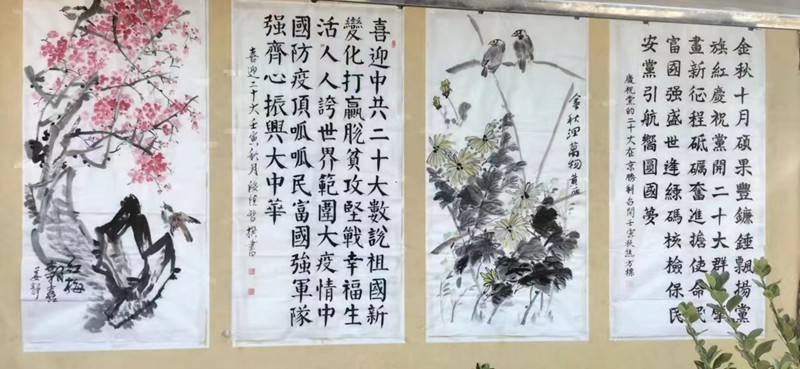 紅梅
喜迎中共二十大數說祖國新
變化打贏脫貧攻堅戰幸福生
活人人誇世界範圍大疫情中
國防疫頂呱呱民富國強軍隊
強齊心振興大中華
喜迎二十大壬寅秋月撰書
金秋潤萬物
金秋十月碩果豐鐮錘飄揚黨
旗紅慶祝黨開二十大群擘
畫新征程砥礪奮進擔使命
富國强盛世逢綠碼核檢保民
安黨引航嚮圓國夢
慶祝黨的二十大在京勝利召開壬寅秋